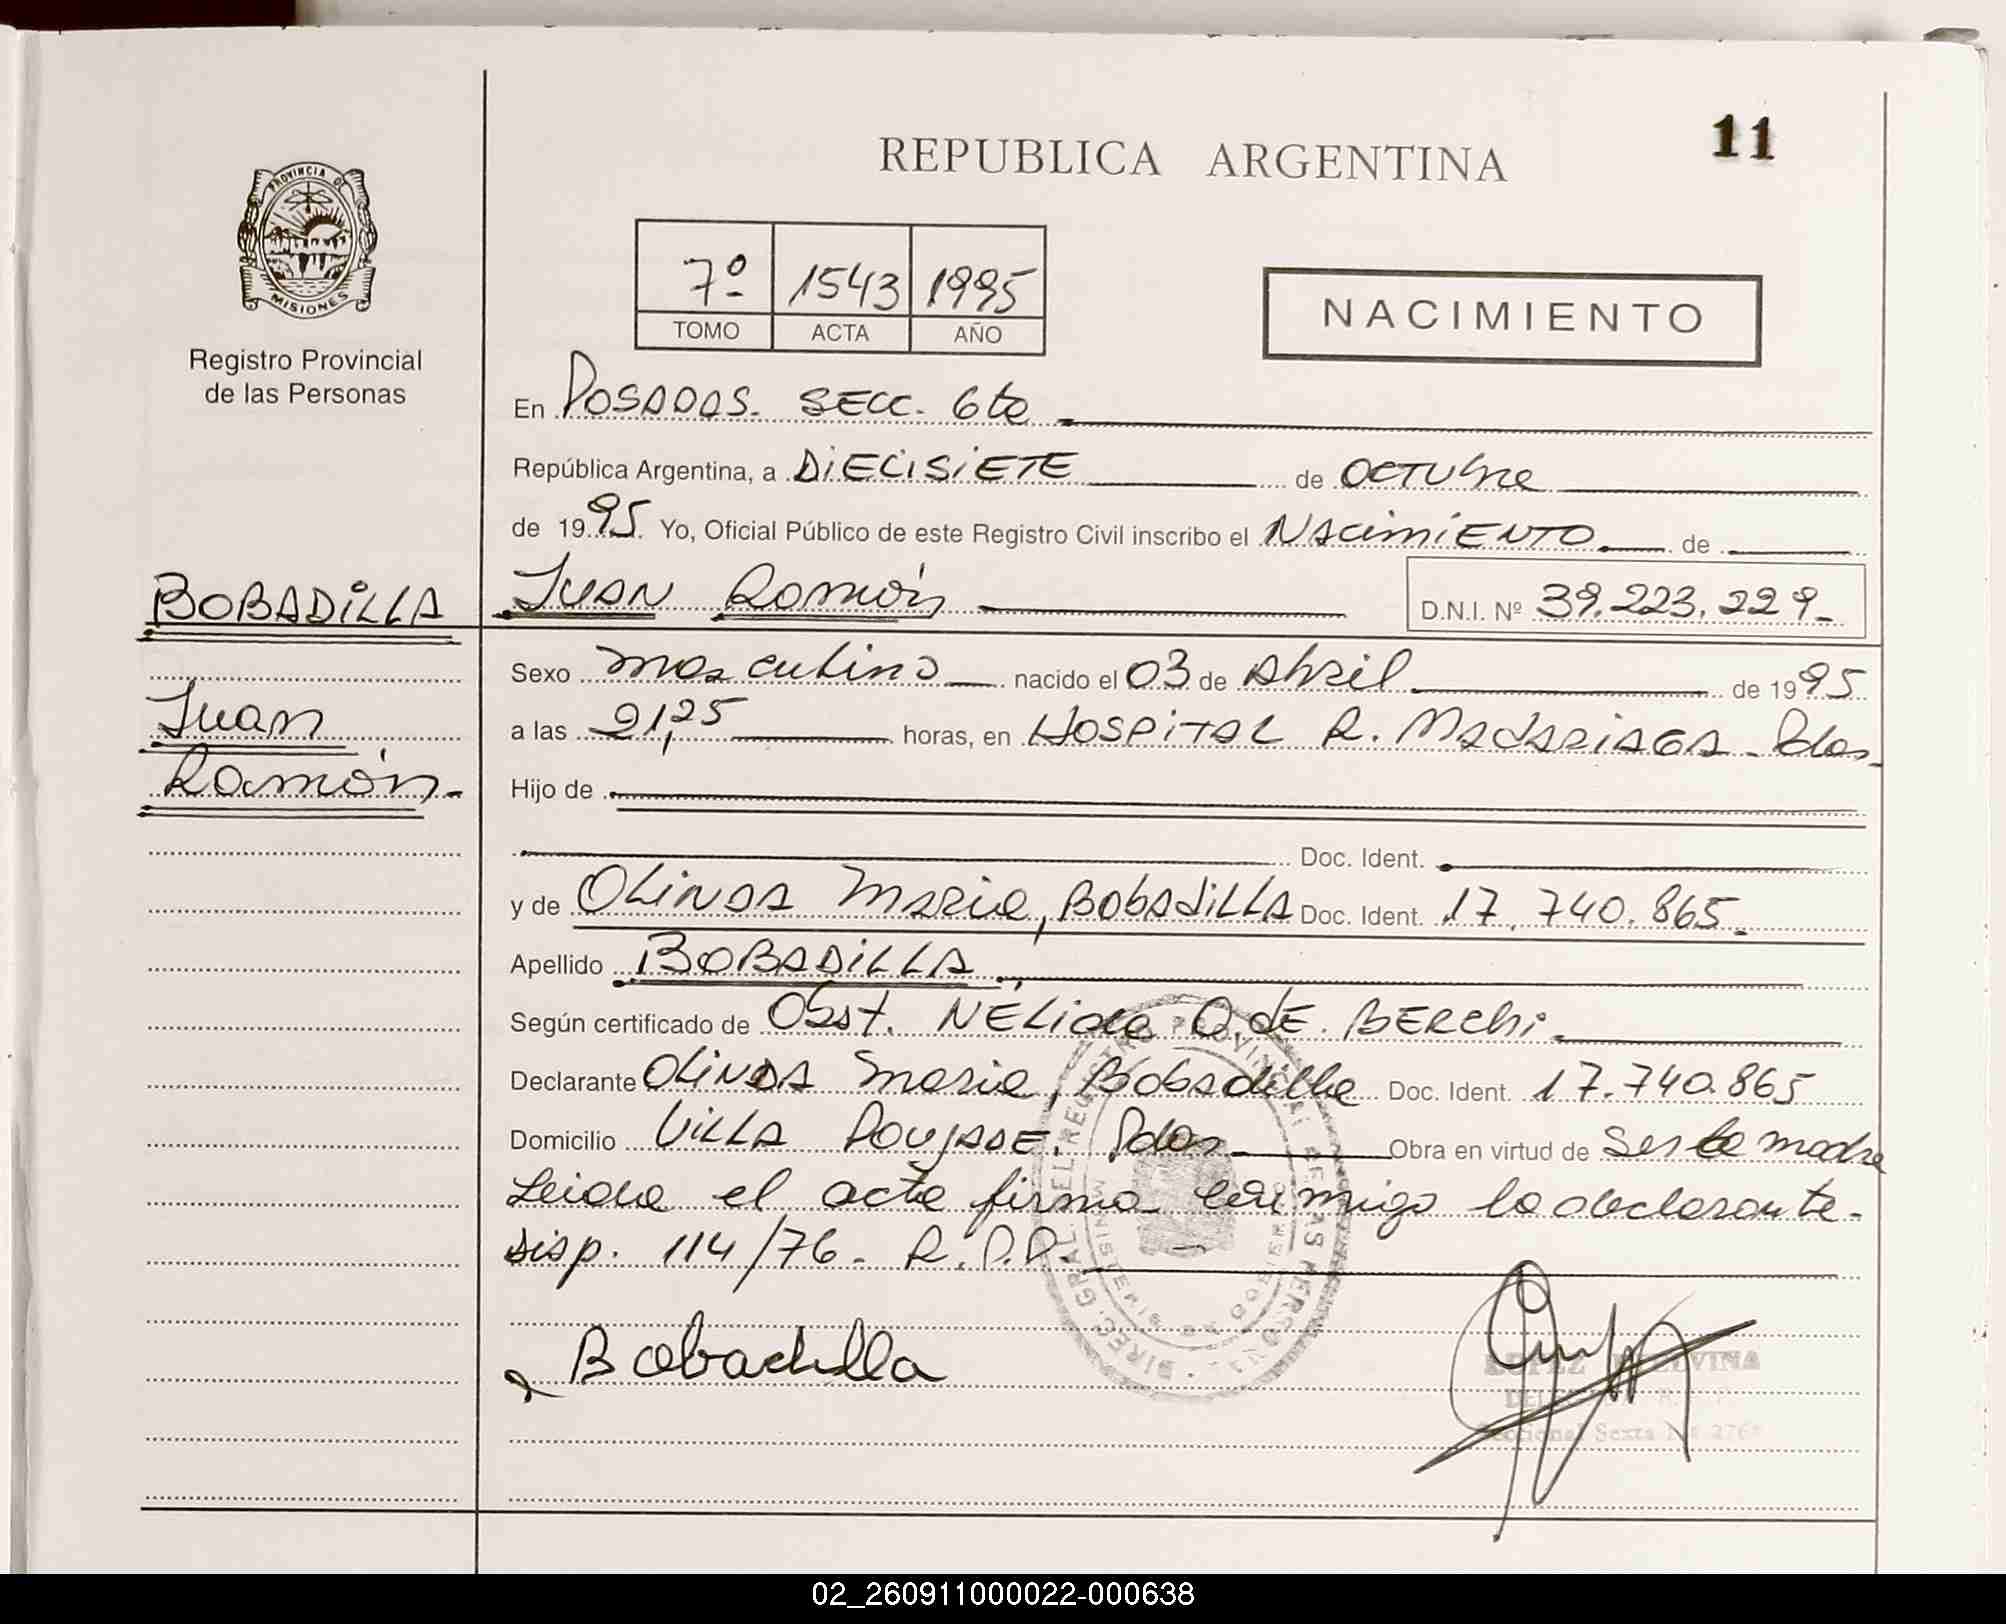 11
REPUBLICA ARGENTINA
PROVINCIA DE
MISIONES
Registro Provincial
de las Personas
7º 1543 1995
TOMO ACTA AÑO
NACIMIENTO
En POSADAS. SECC. 6ta
República Argentina, a DIECISIETE de OCTUbre
de 1995. Yo, Oficial Público de este Registro Civil inscribo el NAcimiENTO de
BOBADILLA
Juan
Ramón.-
JUAN Ramón D.N.I. Nº 39.223.229.-
Sexo masculino nacido el 03 de Abril de 1995
a las 21,25 horas, en HOSPITAL R. MADARIAGA - Pdas.
Hijo de
Doc. Ident.
y de OLINDA MARIA, BObAdiLLA Doc. Ident. 17.740.865.-
Apellido BOBADILLA
Según certificado de Obst. NÉLida O. dE. BERchi.
Declarante OLINDA Maria, Bobadilla Doc. Ident. 17.740.865
Domicilio VILLA POUJADE. Pdas. Obra en virtud de Ser la madre
Leida el acta firma conmigo la declarante.
Disp. 114/76. R.P.P.
DIREC. GRAL. DEL REGISTRO PROVINCIAL DE LAS PERSONAS
Bobadilla
Seccional Sexta
02_260911000022-000638